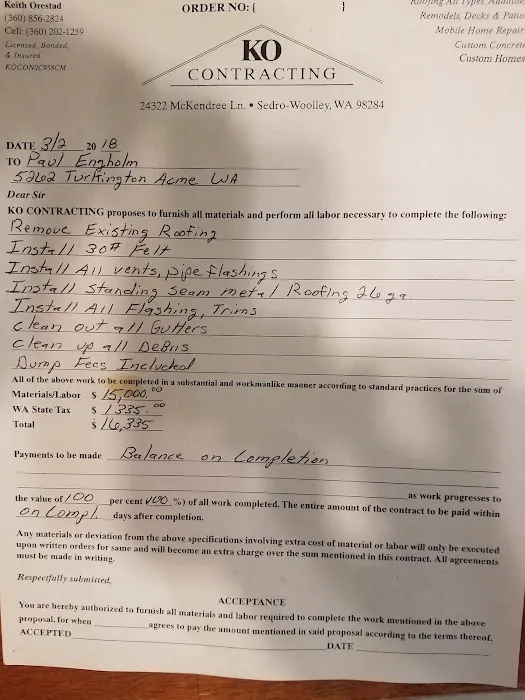 Keith Orestad
(360) 856-2824
Cell: (360) 202-1259
Licensed, Bonded,
& Insured
KOCONOC958CM
ORDER NO: [ ]
Roofing All Types, Additions
Remodels, Decks & Patio
Mobile Home Repair
Custom Concrete
Custom Homes
KO
CONTRACTING
24322 McKendree Ln. • Sedro-Woolley, WA 98284
DATE 3/2 20 18
TO Paul Engholm
5262 Turkington Acme WA
Dear Sir
KO CONTRACTING proposes to furnish all materials and perform all labor necessary to complete the following:
Remove Existing Roofing
Install 30# Felt
Install All vents, pipe flashings
Install Standing Seam metal Roofing 26 ga
Install All Flashing, Trims
clean out all Gutters
clean up all Debris
Dump Fees Included
All of the above work to be completed in a substantial and workmanlike manner according to standard practices for the sum of
Materials/Labor $ 15,000.00
WA State Tax $ 1335.00
Total $ 16,335
Payments to be made Balance on Completion
as work progresses to
the value of 100 per cent (100 %) of all work completed. The entire amount of the contract to be paid within
on Compl. days after completion.
Any materials or deviation from the above specifications involving extra cost of material or labor will only be executed
upon written orders for same and will become an extra charge over the sum mentioned in this contract. All agreements
must be made in writing.
Respectfully submitted,
ACCEPTANCE
You are hereby authorized to furnish all materials and labor required to complete the work mentioned in the above
proposal, for when agrees to pay the amount mentioned in said proposal according to the terms thereof.
ACCEPTED DATE